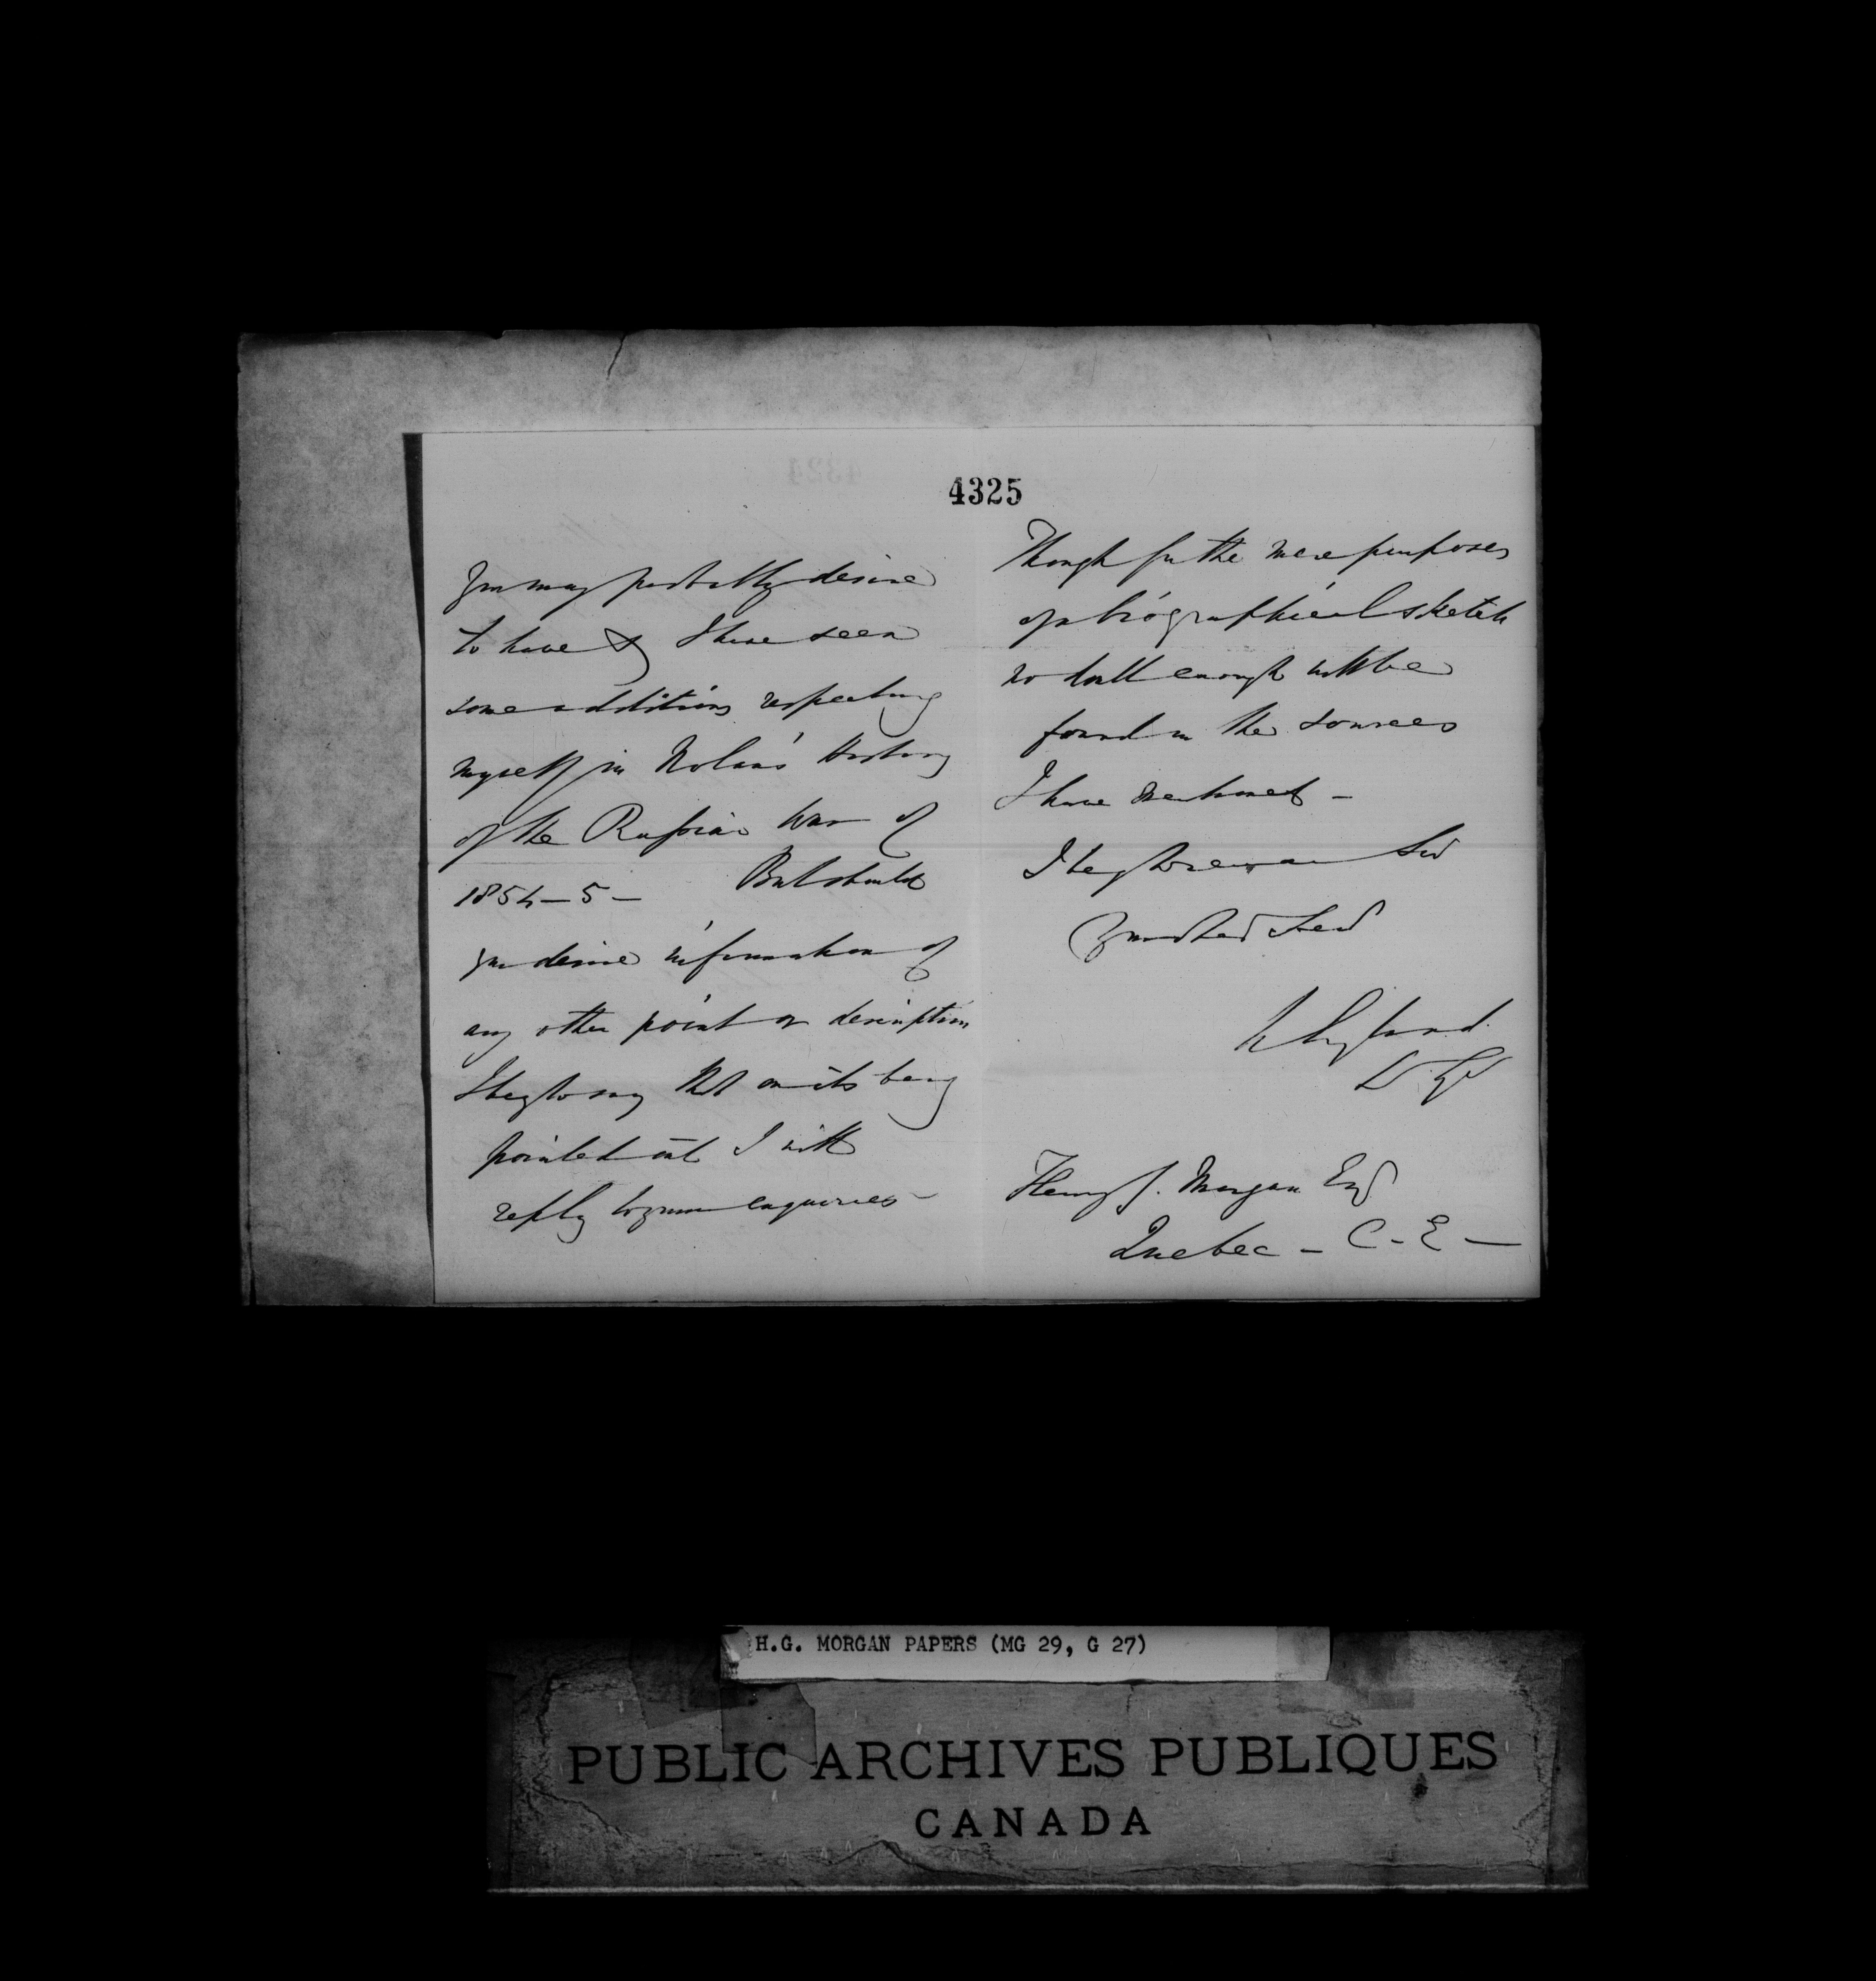 4325
You may probably desire
to have & I have seen
some additions respecting
myself in Nolan's History
of the Russian War of
1854–5 – But should
you desire information of
any other point or description
I beg to say that on its being
pointed out I will
reply to your enquiries –
Though for the mere purposes
of a biographical sketch
no doubt enough will be
found in the sources
I have mentioned –
I beg to remain Sir
Your
Henry J. Morgan Esq
Quebec – C – E –
H.G. MORGAN PAPERS (MG 29, G 27)
PUBLIC ARCHIVES PUBLIQUES
CANADA